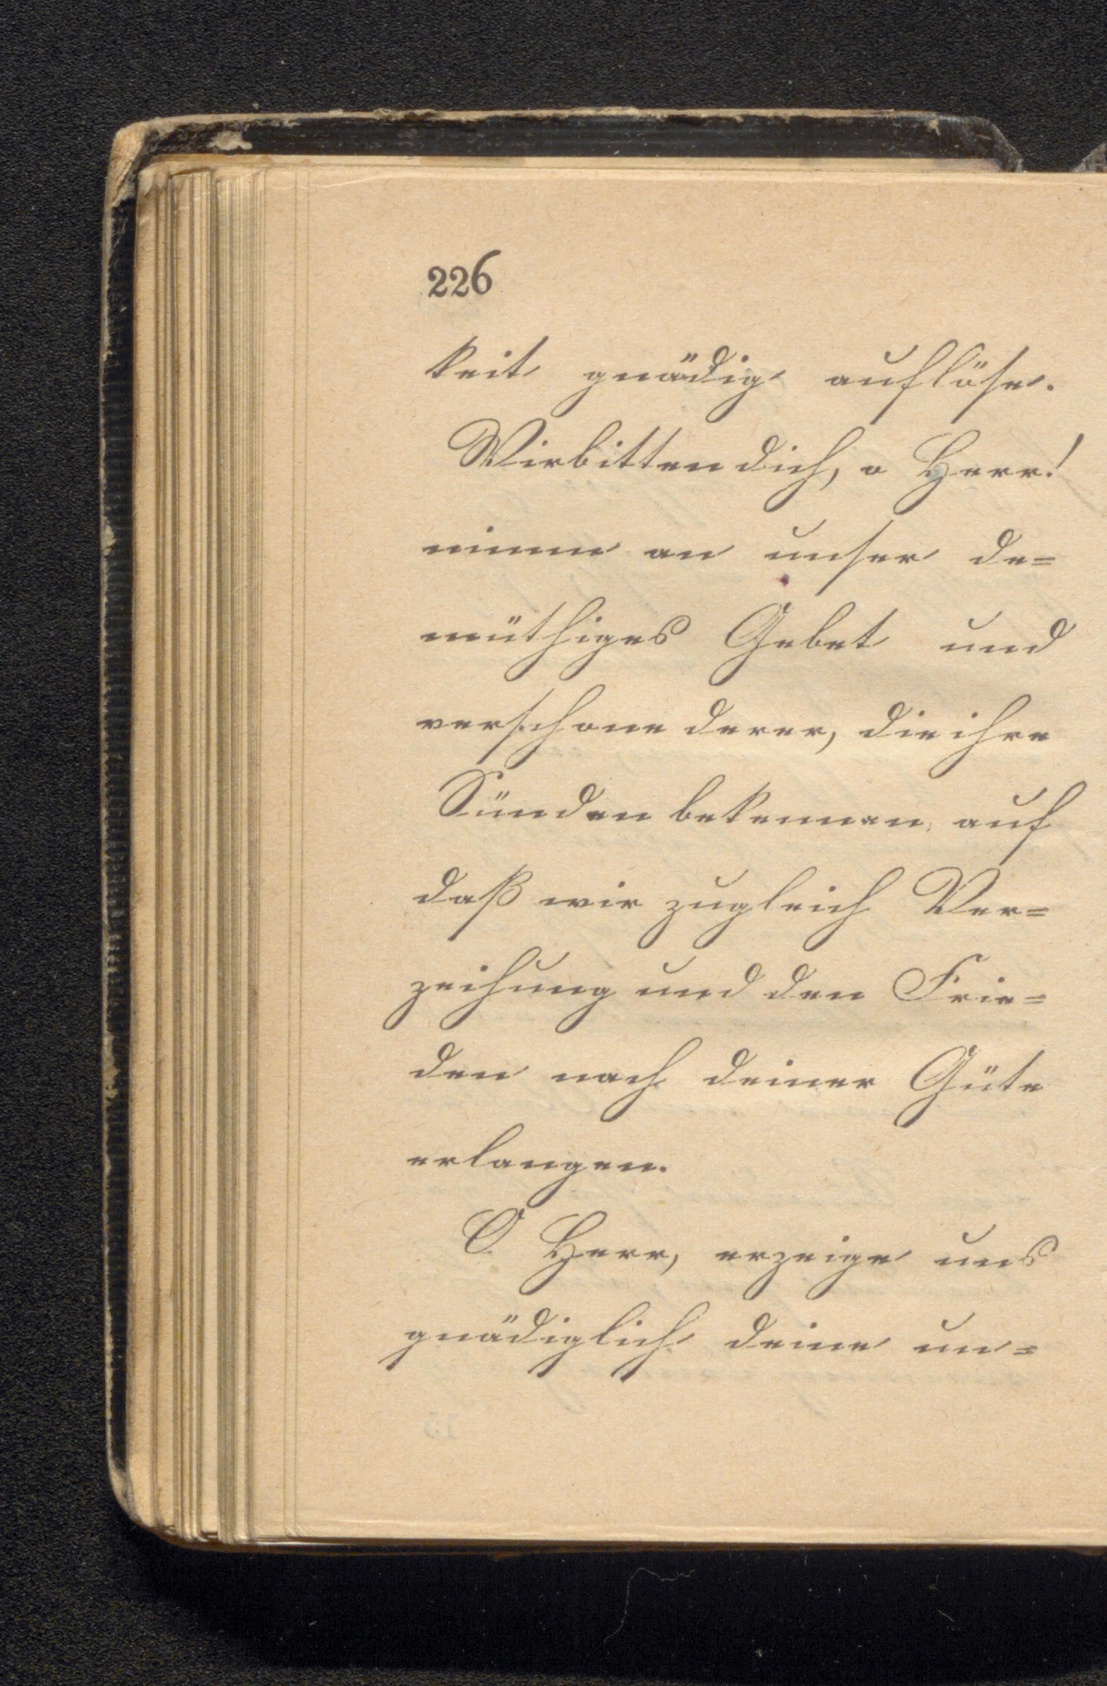 226
keit gnädig auflöse.
Wir bitten dich, o Herr!
nimm an unser de=
müthiges Gebet und
verschone derer, die ihre
Sünden bekennen, auf
daß wir zugleich Ver=
zeihung und den Frie=
den nach deiner Güte
erlangen.
O Herr, erzeige uns
gnädiglich deine un=